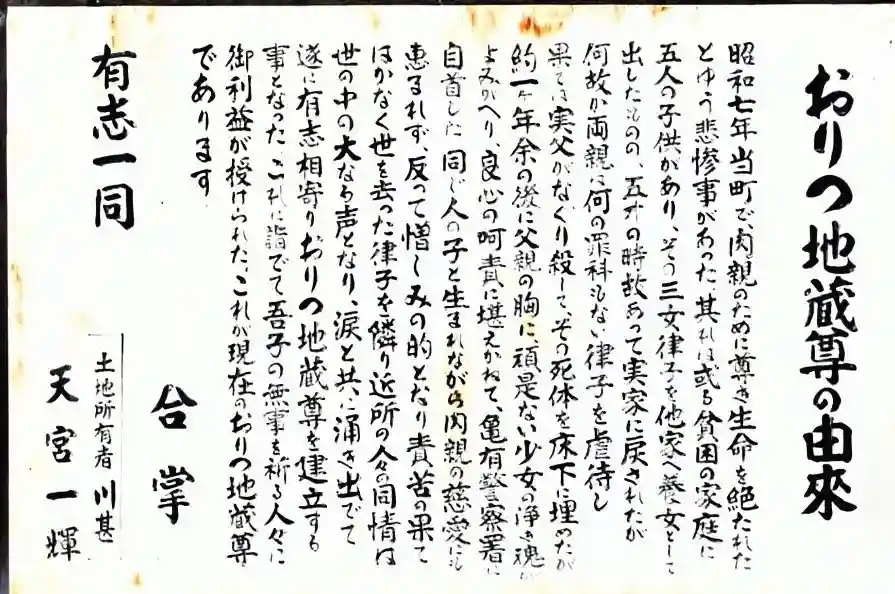 おりつ地蔵尊の由來
昭和七年当町で、肉親のために尊き生命を絶たれた
とゆう悲惨事があった、其れは或る貧困の家庭に
五人の子供があり、その三女律子を他家へ養女として
出したものの、五才の時故あって実家に戻されたが
何故か両親は何の罪科もない律子を虐待し
果ては実父がなぐり殺して、その死体を床下に埋めたが
約一ヶ年余の後に父親の胸に、頑是ない少女の浄き魂が
よみがへり、良心の呵責に堪えかねて、亀有警察署に
自首した 同じ人の子と生まれながら肉親の慈愛にも
惠まれず、反って憎しみの的となり責苦の果て
はかなく世を去った律子を憐り近所の人々の同情は
世の中の大なる声となり、涙と共に涌き出でて
遂に有志相寄りおりつ地蔵尊を建立する
事となった、これに詣でて吾子の無事を祈る人々に
御利益が授けられた、これが現在のおりつ地蔵尊
であります
合掌
有志一同
土地所有者 川甚
天宮一輝